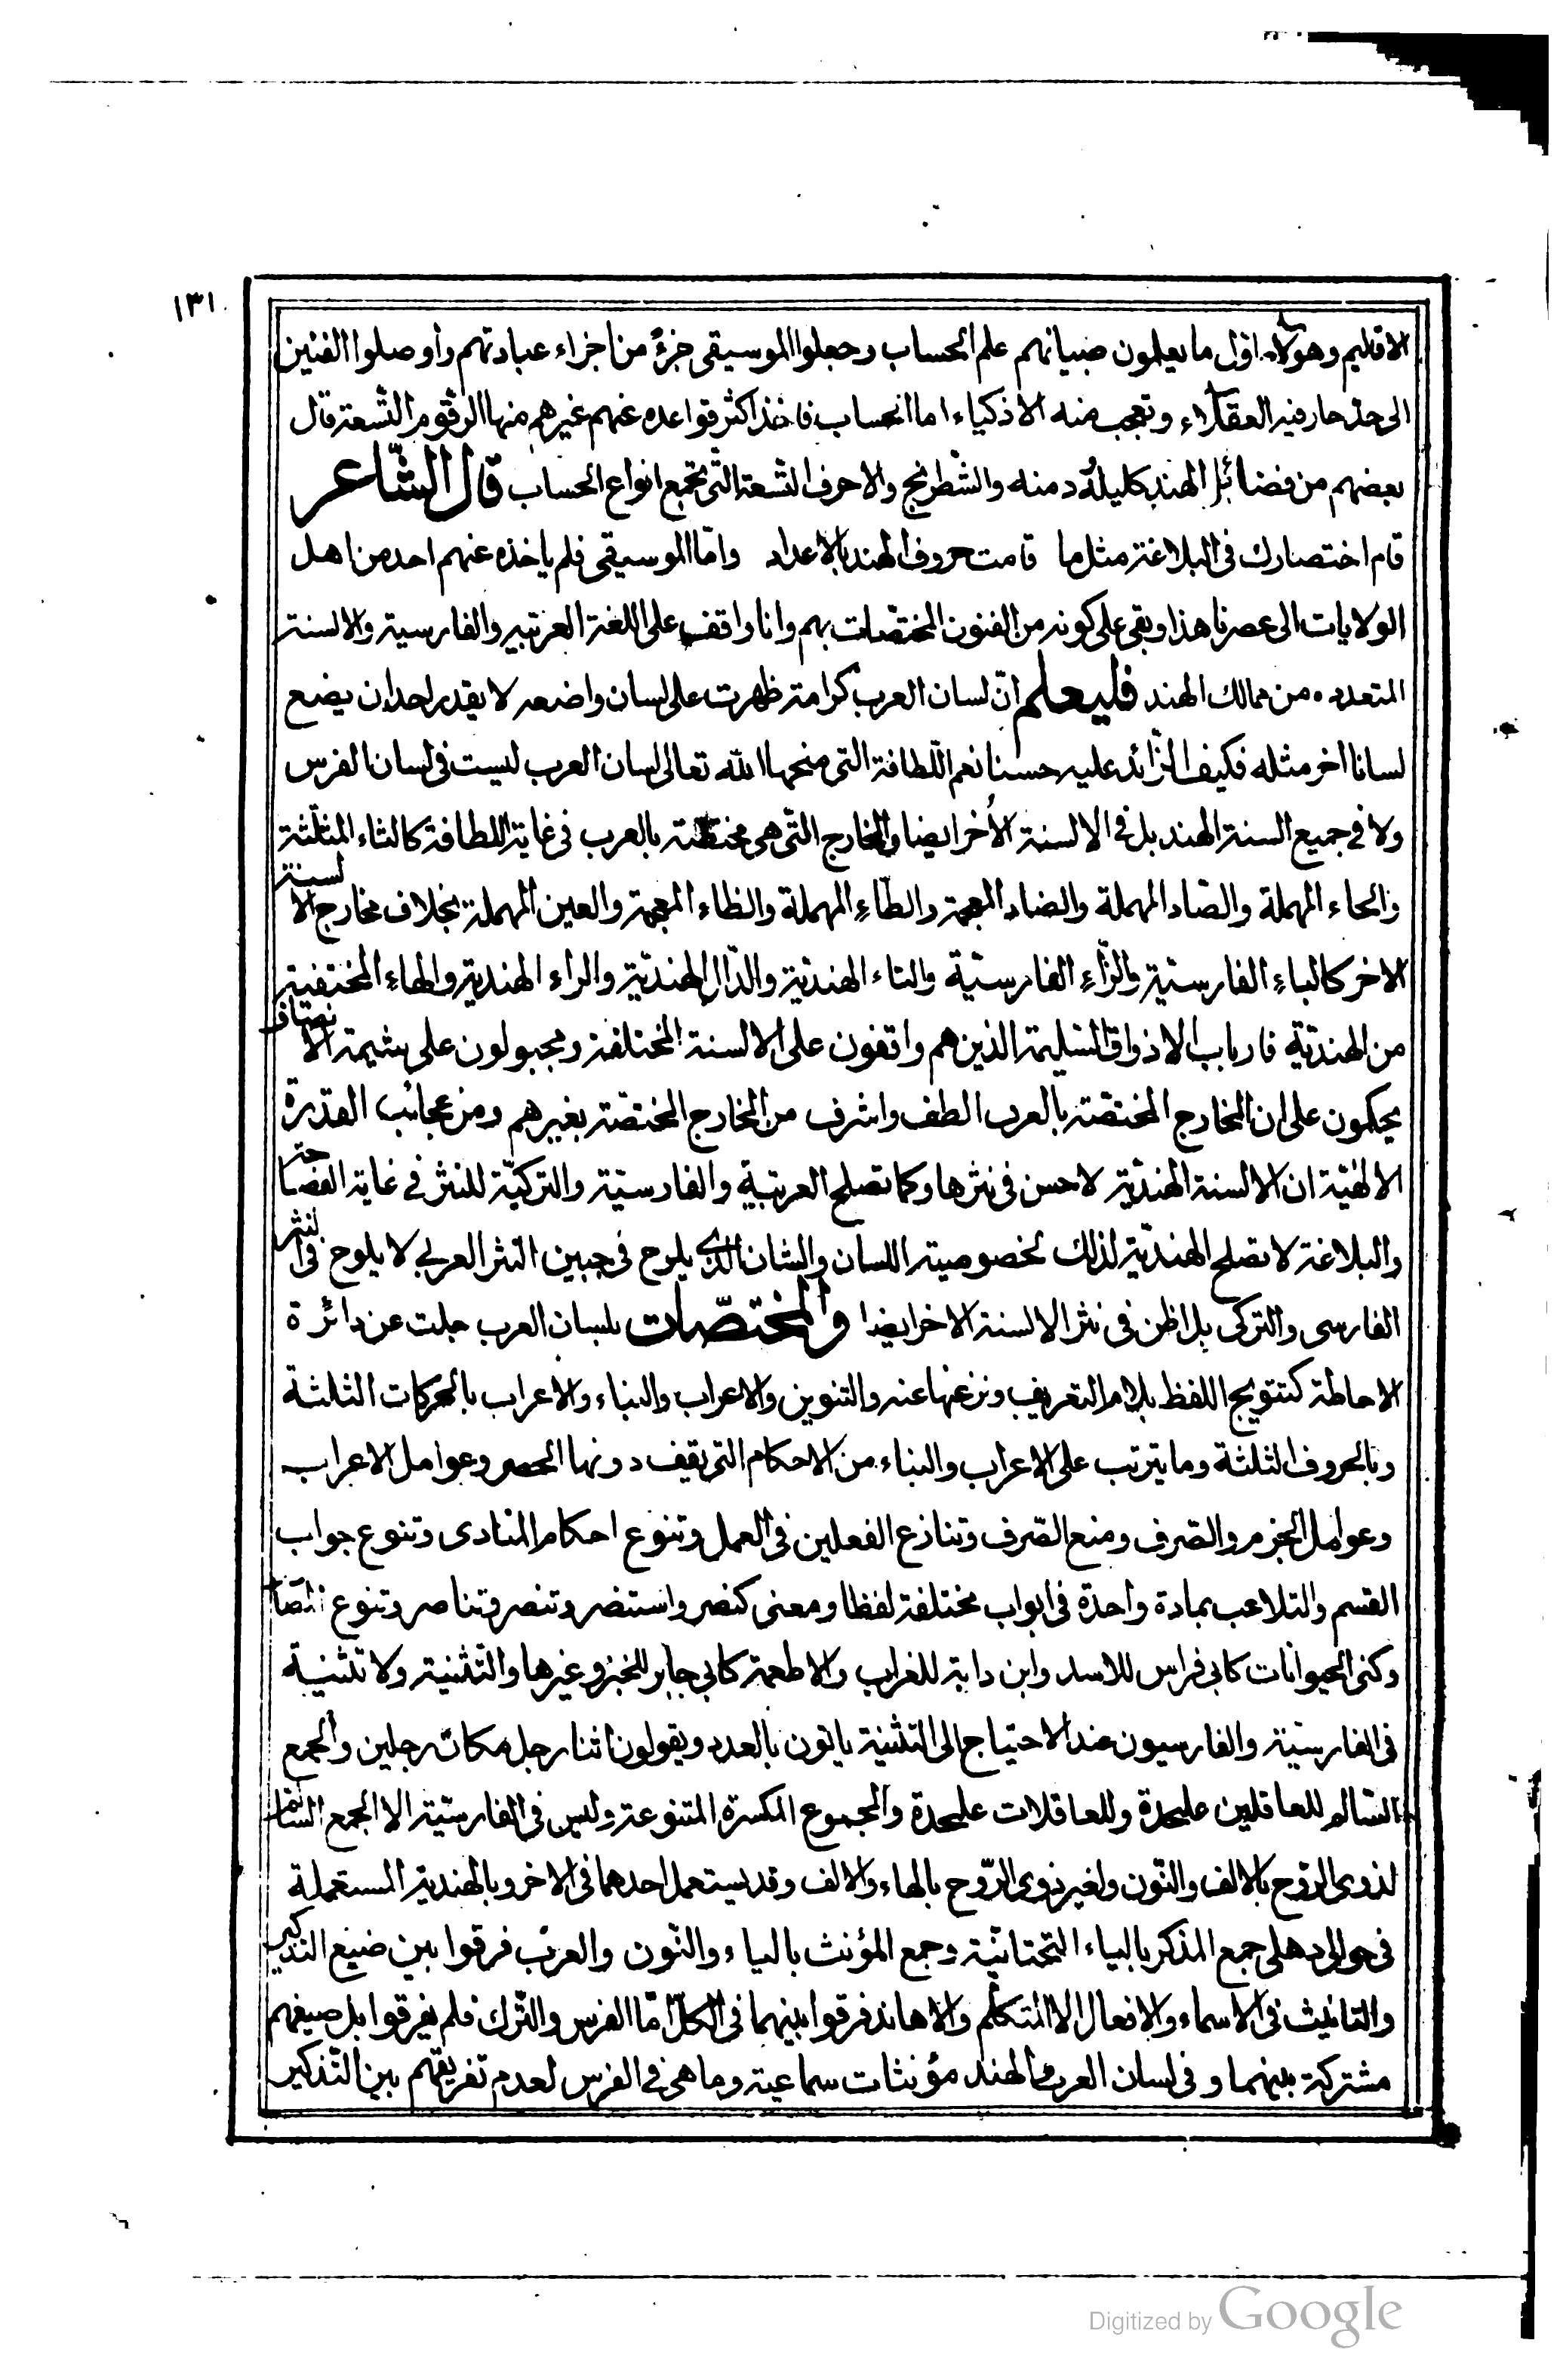 ١٣١
الاقليم وهؤلاء اوّل ما يعلمون صبيانهم علم الحساب وجعلوا الموسيقى جزءً من اجزاء عباداتهم واوصلوا الفنين
الى حدٍّ حار فيه العقلاء وتعجب منه الاذكياء اما الحساب فاخذ اكثر قواعده عنهم غيرهم منها الرقوم التسعة قال
بعضهم من فضائل الهند كليله ودمنه والشطرنج والاحرف التسعة التى تجمع انواع الحساب قال الشّاعر
قام اختصارك فى البلاغة مثل ما قامت حروف الهند بالاعداد وامّا الموسيقى فلم ياخذه عنهم احد من اهل
الولايات الى عصرنا هذا وبقى على كونه من الفنون المختصّات بهم وانا واقف على اللغة العربية والفارسية والالسنة
المتعدده من ممالك الهند فليعلم انّ لسان العرب كرامة ظهرت على لسان واضعه لا يقدر احد ان يضع
لسانا اخر مثله فكيف الزّائد عليه حسنا نعم اللّطافة التى منحها الله تعالى لسان العرب ليست فى لسان الفرس
ولا فى جميع السنة الهند بل فى الالسنة الأخر ايضا والمخارج التّى هى مختصّة بالعرب فى غاية اللطافة كالثاء المثلثة
والحاء المهملة والصّاد المهملة والضاد المعجمة والطّاءِ المهملة والظاء المعجمة والعين المهملة بخلاف مخارج الالسنة
الاخر كالباءِ الفارسيّة والزّاءِ الفارسيّة والتاء الهنديّة والدّال الهنديّة والراء الهندية والهاء المختفية
من الهنديّة فارباب الاذواق السّليمة الذين هم واقفون على الالسنة المختلفة ومجبولون على شيمة الانصاف
يحكمون على ان المخارج المختصّة بالعرب الطف واشرف من المخارج المختصّة بغيرهم ومن عجائب القدرة
الالهيّة ان الالسنة الهنديّة لا حسن فى نثرها وكما تصلح العربيّة والفارسيّة والتركيّة للنثر فى غاية الفصاحة
والبلاغة لا تصلح الهنديّة لذلك لخصوصية اللسان والشان الذى يلوح فى جبين النثر العربى لا يلوح فى النثر
الفارسى والتركى بل اظن فى نثر الالسنة الاخر ايضا والمختصّات بلسان العرب جلت عن دائرة
الاحاطة كتتويج اللفظ بلام التعريف ونزعها عنه والتنوين والاعراب والبناء والاعراب بالحركات الثلثة
وبالحروف الثلثة وما يترتب على الاعراب والبناء من الاحكام التى يقف دونها الحصر وعوامل الاعراب
وعوامل الجزم والصّرف ومنع الصّرف وتنازع الفعلين فى العمل وتنوع احكام المنادى وتنوع جواب
القسم والتلاعب بمادة واحدة فى ابواب مختلفة لفظا ومعنى كنصر واستنصر وتنصر وتناصر وتنوع
وكنى الحيوانات كابى فراس للاسد وابن داية للغراب والاطعمة كابى جابر للخبز وغيرها والتثنية ولا تثنية
فى الفارسيّة والفارسيون عند الاحتياج الى التثنية ياتون بالعدد ويقولون اثنا رجل مكان رجلين والجمع
السّالم للعاقلين عليحدة وللعاقلات عليحدة والجموع المكسرة المتنوعة وليس فى الفارسيّة الا الجمع السّالم
لذوى الرّوح بالالف والنّون ولغير ذوى الرّوح بالهاء والالف وقد يستعمل احدهما فى الاخر وبالهندية المستعملة
فى حوالى دهلى جمع المذكر بالياء التحتانيّة وجمع المؤنث بالياء والنّون والعرب فرقوا بين صيغ التذكير
والتانيث فى الاسماء والافعال الا المتكلم والاهاند فرقوا بينهما فى الكل امّا الفرس والتّرك فلم يفرقوا بل صيغهم
مشتركة بينهما وفى لسان العرب والهند مؤنثات سماعية وما هى فى الفرس لعدم تفريقهم بين التّذكير
Digitized by Google